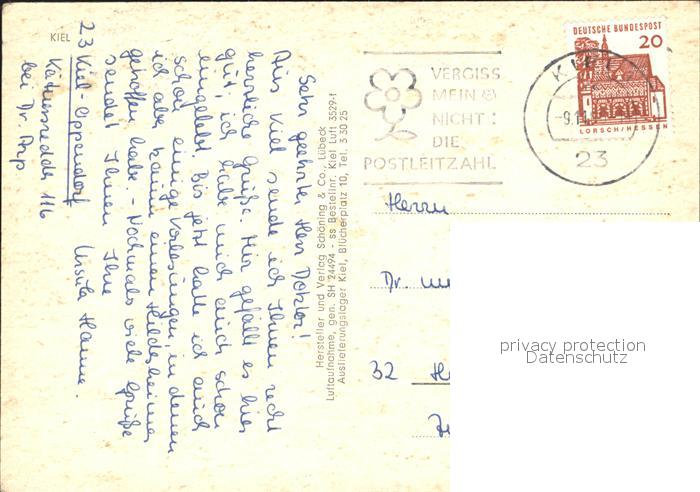 KIEL
Sehr geehrter Herr Doktor!
Aus Kiel sende ich Ihnen recht
herzliche Grüße. Hier gefällt es hier
gut, ich habe mich auch schon
eingelebt. Bis jetzt hatte ich auch
schon einige Vorlesungen, in denen
ich aber kaum einen Hildesheimer
getroffen habe. - Nochmals viele Grüße
sendet Ihnen Ihre
Ursula Hanne.
23 Kiel-Oppendorf
116
bei Dr. Arp
Hersteller und Verlag Schöning & Co., Lübeck
Luftaufnahme, gen. SH 24494 - ss Bestellnr. Kiel Luft 3529-f
Auslieferungslager Kiel, Blücherplatz 10, Tel. 3 30 25
VERGISS
MEIN
NICHT:
DIE
POSTLEITZAHL
DEUTSCHE BUNDESPOST
20
LORSCH/HESSEN
KIEL
23
Herrn
Dr.
32
privacy protection
Datenschutz